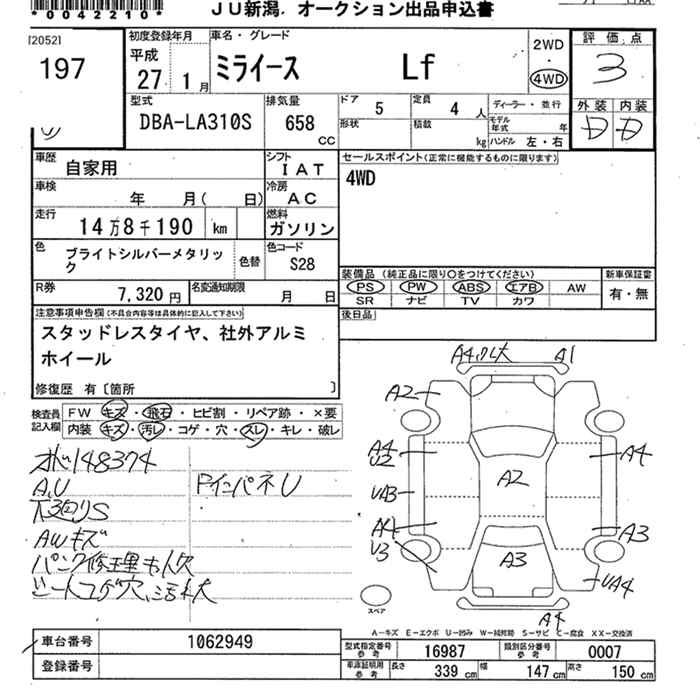 *0042210*
JU新潟 オークション出品申込書
[2052]
197
初度登録年月
平成
27 1月
車名・グレード
ミライース Lf
2WD
・
4WD
評価点
3
外装 内装
D D
型式
DBA-LA310S
排気量
658 CC
ドア 5
定員 4人
ディーラー・並行
形状
積載 kg
モデル年式 年
ハンドル 左・右
車歴 自家用
シフト IAT
セールスポイント(正常に機能するものに限ります)
4WD
車検 年 月( 日)
冷房 AC
走行 14万8千190 km
燃料 ガソリン
色 ブライトシルバーメタリック
色替
色コード S28
装備品 (純正品に限り○をつけてください)
新車保証書
PS PW ABS エアB AW
有・無
SR ナビ TV カワ
R券 7,320円
名変通知期限 月 日
後日品
注意事項申告欄(不具合内容等は具体的に記入して下さい)
スタッドレスタイヤ、社外アルミ
ホイール
修復歴 有〔箇所 〕
検査員
記入欄
FW キズ・飛石・ヒビ割・リペア跡・×要
内装 キズ・汚レ・コゲ・穴・スレ・キレ・破レ
148374
A.U
下廻りS
AWキズ
パンク修理キット欠
シートコゲ穴、汚れ大
インパネU
A4 A1
A2
A4
U2
A4
A2
UA3
A4
U3
A3
A3
UA4
A4
スペア
A-キズ E-エクボ U-凹み W-補修跡 S-サビ C-腐食 XX-交換済
車台番号 1062949
登録番号
型式指定番号 参考 16987
類別区分番号 参考 0007
車庫証明用 参考 長さ 339 cm 幅 147 cm 高さ 150 cm